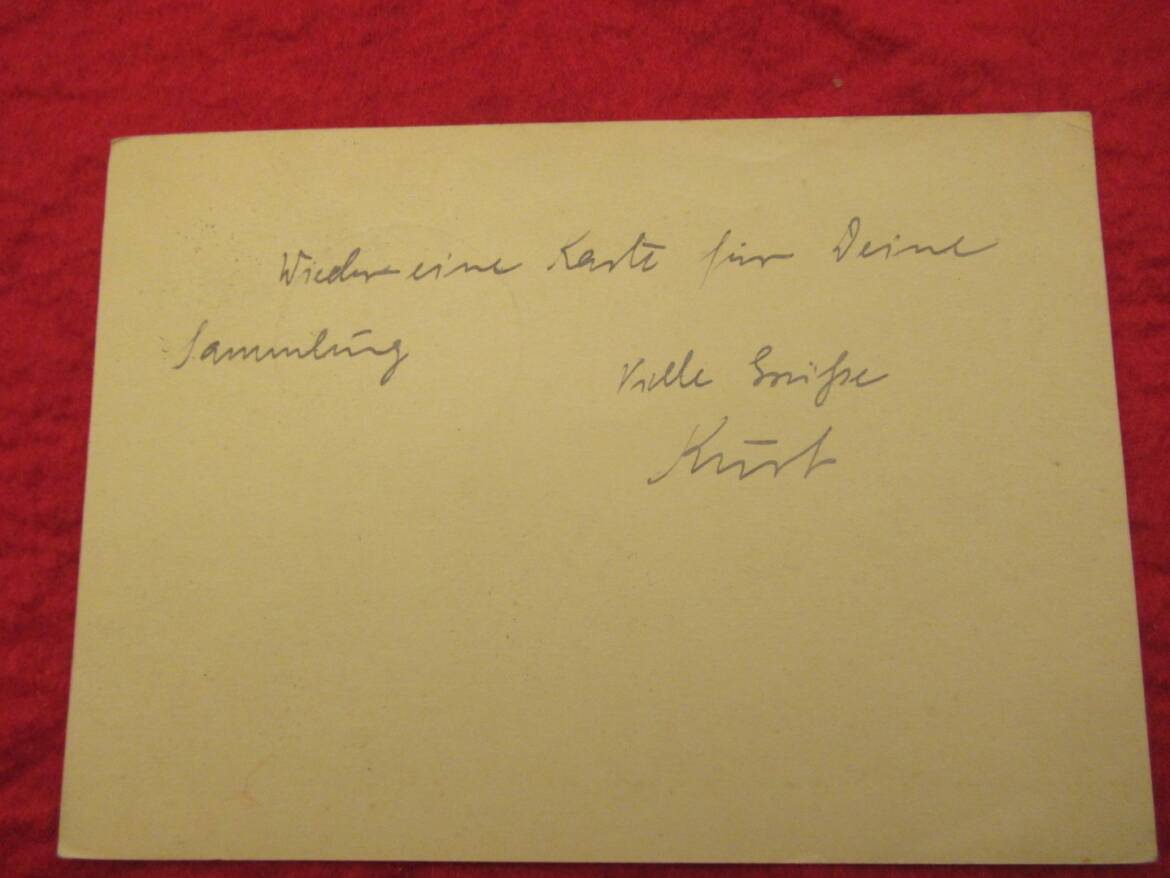 Wieder eine Karte für Deine
Sammlung
Viele Grüße
Kurt